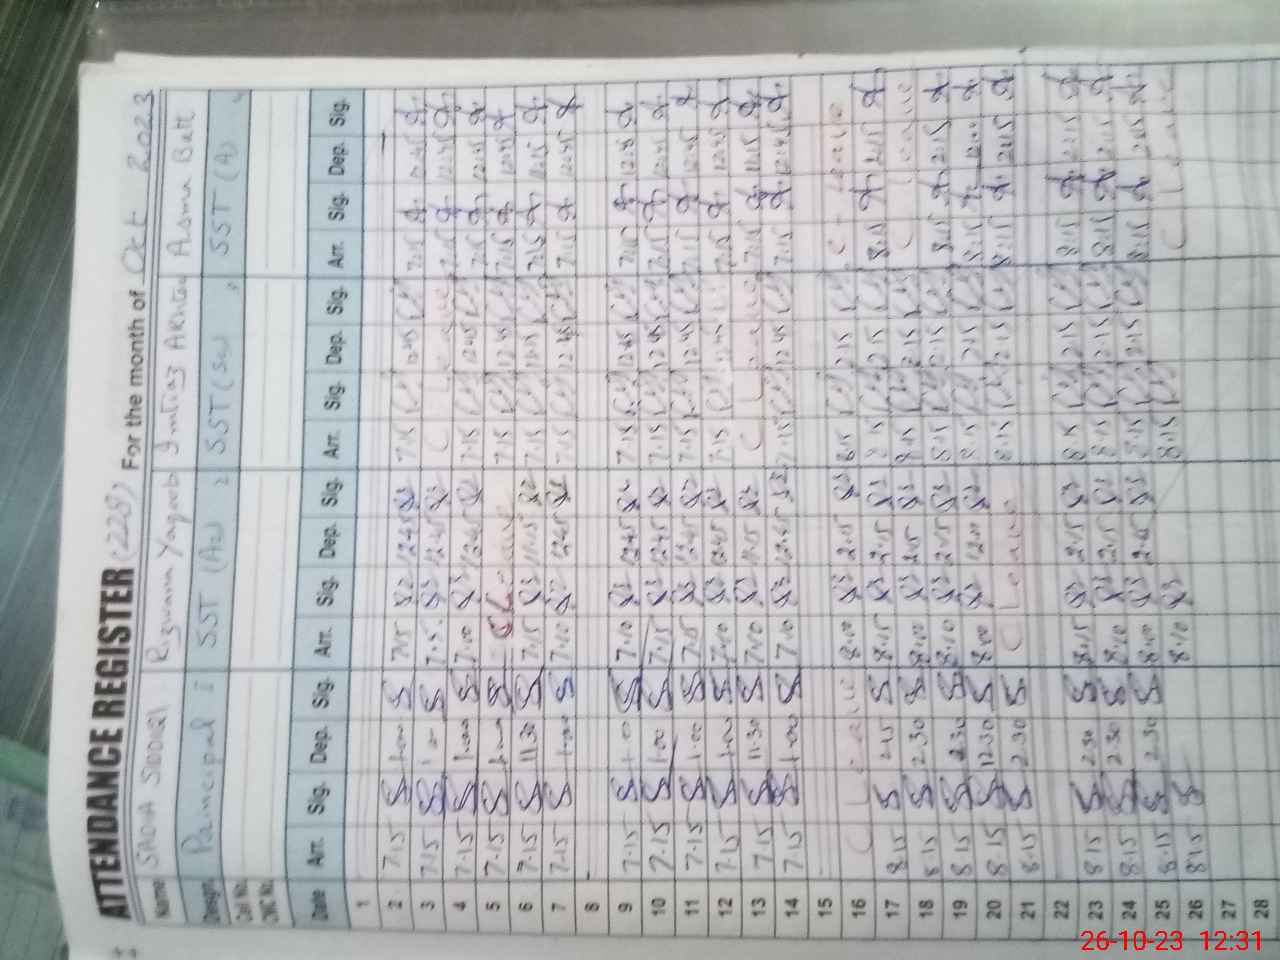 ATTENDANCE REGISTER (228) For the month of Oct 2023
Name SADIA SIDDIQI Rizwana Yaqoob Imtiaz Akhtar Asma Batt
Desgn. Principal SST (Au) SST (Su) SST (A)
Cell No.
CNIC No.
Date Arr. Sig. Dep. Sig. Arr. Sig. Dep. Sig. Arr. Sig. Dep. Sig. Arr. Sig. Dep. Sig.
1
2 7.15 1.00 7.15 12.45 7.15 12.45 7.15 12.45
3 7.15 1.00 7.15 12.45 C Leave 7.15 12.45
4 7.15 1.00 7.00 12.45 7.15 12.45 7.15 12.45
5 7.15 1.00 C Leave 7.15 12.45 7.15 12.45
6 7.15 11.30 7.15 11.15 7.15 11.15 7.15 11.15
7 7.15 1.00 7.10 12.45 7.15 12.45 7.15 12.45
8
9 7.15 1.00 7.10 12.45 7.15 12.45 7.15 12.45
10 7.15 1.00 7.15 12.45 7.15 12.45 7.15 12.45
11 7.15 1.00 7.15 12.45 7.15 12.45 7.15 12.45
12 7.15 1.00 7.10 12.45 7.15 12.45 7.15 12.45
13 7.15 11.30 7.10 11.15 C Leave 7.15 11.15
14 7.15 1.00 7.10 12.45 7.15 12.45 7.15 12.45
15
16 C Leave 8.00 2.15 8.15 2.15 C Leave
17 8.15 2.15 8.15 2.15 8.15 2.15 8.15 2.15
18 8.15 2.30 8.00 2.15 8.15 2.15 C Leave
19 8.15 2.30 8.10 2.15 8.15 2.15 8.15 2.15
20 8.15 12.30 8.00 12.00 8.15 8.15 12.00
21 8.15 2.30 C Leave 8.15 2.15 8.15 2.15
22
23 8.15 2.30 8.15 2.15 8.15 2.15 8.15 2.15
24 8.15 2.30 8.10 2.15 8.15 2.15 8.15 2.15
25 8.15 2.30 8.00 2.15 8.15 2.15 8.15 2.15
26 8.15 8.10 8.15 C Leave
27
28
26-10-23 12:31